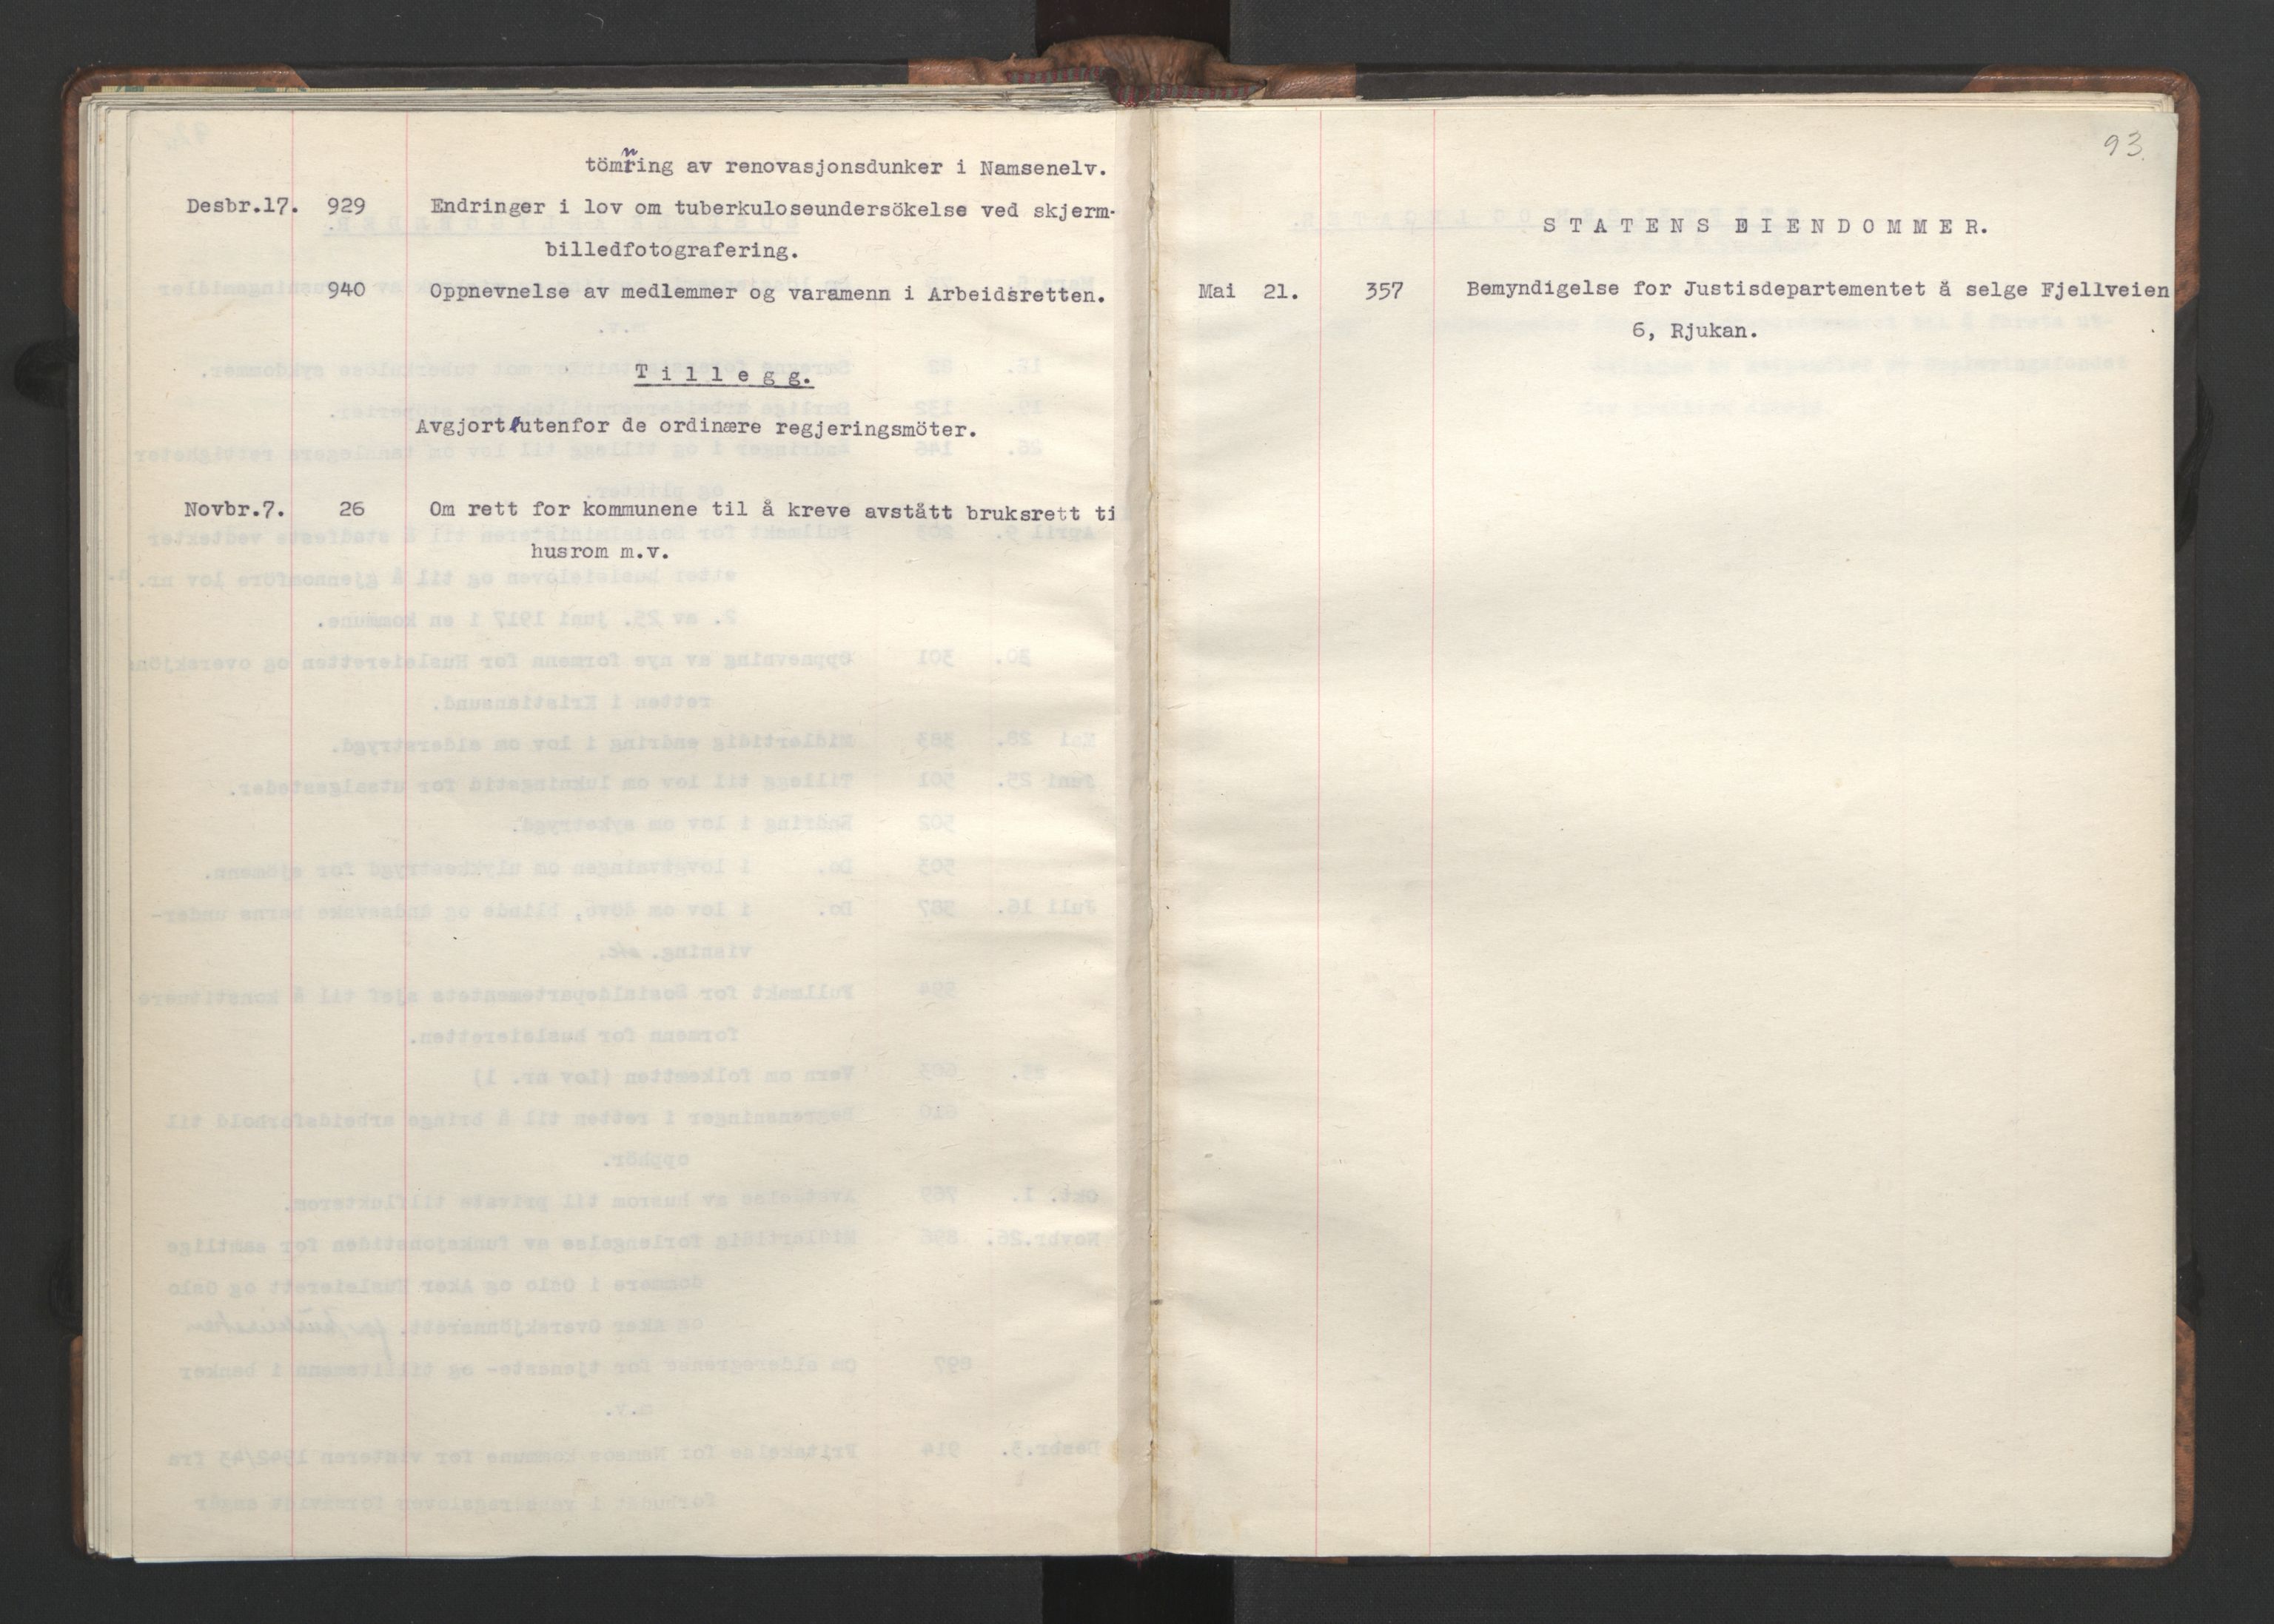 tömning av renovasjonsdunker i Namsenelv.
Desbr.17. 929 Endringer i lov om tuberkuloseundersökelse ved skjerm-
billedfotografering.
940 Oppnevnelse av medlemmer og varamenn i Arbeidsretten.
Tillegg.
Avgjort utenfor de ordinære regjeringsmöter.
Novbr.7. 26 Om rett for kommunene til å kreve avstått bruksrett ti
husrom m.v.
93.
STATENS EIENDOMMER.
Mai 21. 357 Bemyndigelse for Justisdepartementet å selge Fjellveien
6, Rjukan.